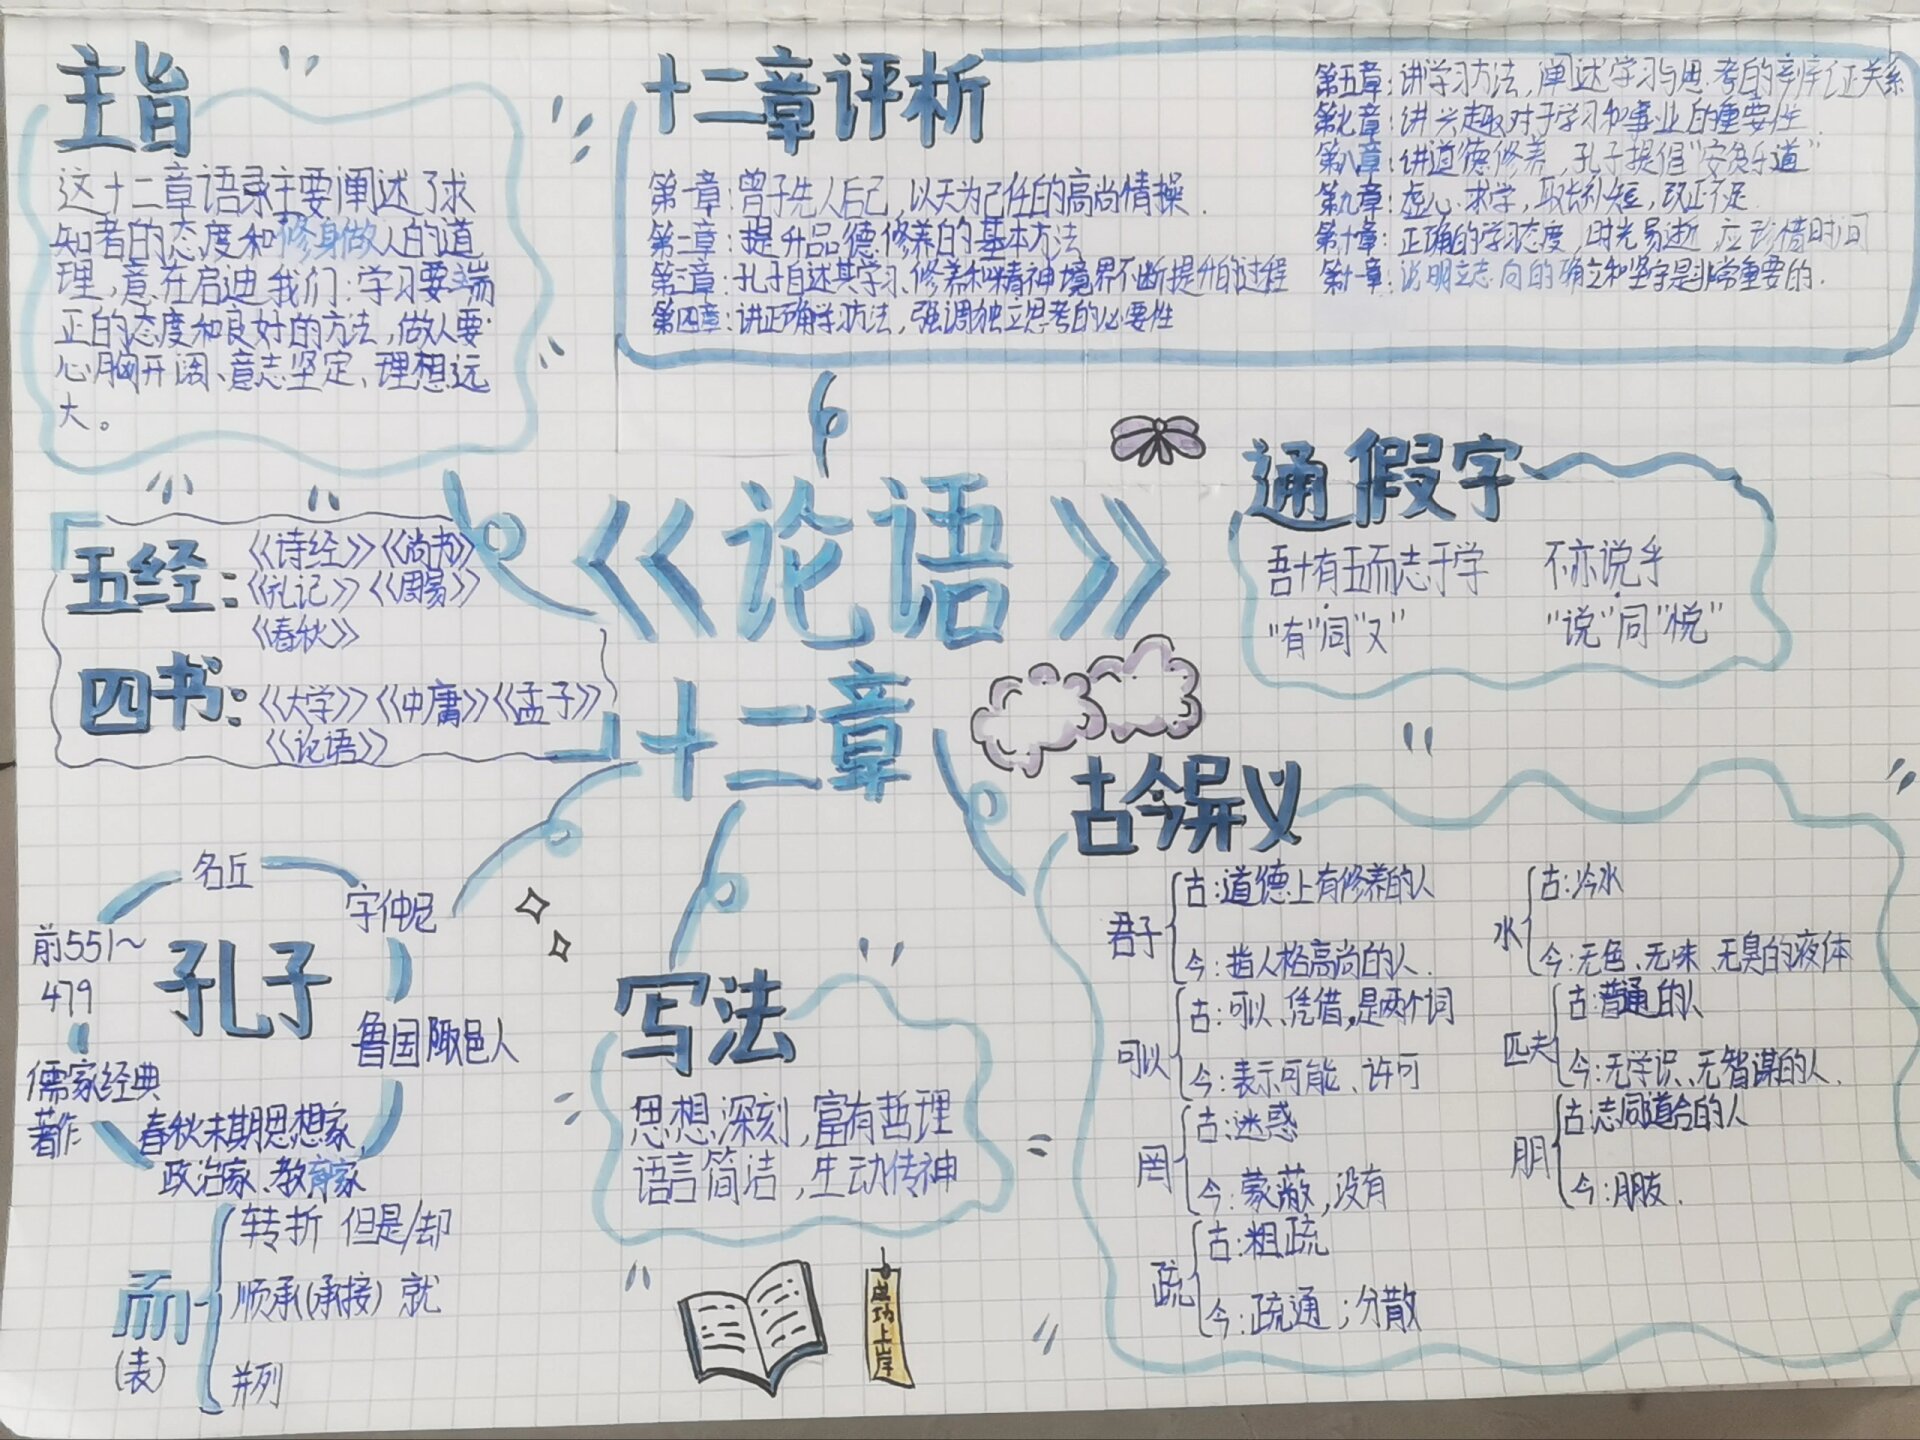 主旨
这十二章语录主要阐述了求
知者的态度和修身做人的道
理,意在启迪我们:学习要端
正的态度和良好的方法,做人要
心胸开阔、意志坚定、理想远
大。
十二章评析
第一章:曾子先人后己,以天为己任的高尚情操.
第二章:提升品德修养的基本方法
第三章:孔子自述其学习、修养和精神境界不断提升的过程
第四章:讲正确学习方法,强调独立思考的必要性
第五章:讲学习方法,阐述学习与思考的辩证关系
第七章:讲兴趣对于学习和事业的重要性.
第八章:讲道德修养,孔子提倡“安贫乐道”
第九章:虚心求学,取长补短,改正不足
第十章:正确的学习态度,时光易逝 应珍惜时间
第十一章:说明立志向的确立和坚守是非常重要的.
五经:
《诗经》《尚书》
《礼记》《周易》
《春秋》
四书:
《大学》《中庸》《孟子》
《论语》
《论语》
十二章
通假字
吾十有五而志于学
“有”同“又”
不亦说乎
“说”同“悦”
古今异义
君子
古:道德上有修养的人
今:指人格高尚的人.
可以
古:可以、凭借,是两个词
今:表示可能、许可
罔
古:迷惑
今:蒙蔽,没有
疏
古:粗疏
今:疏通;分散
水
古:冷水
今:无色、无味、无臭的液体
匹夫
古:普通的人
今:无学识、无智谋的人.
朋
古:志同道合的人
今:朋友.
孔子
名丘
字仲尼
鲁国陬邑人
春秋末期思想家,
政治家、教育家
儒家经典
著作
前551~
479
写法
思想深刻,富有哲理
语言简洁,生动传神
而
(表)
转折 但是/却
顺承(承接) 就
并列
成功上岸